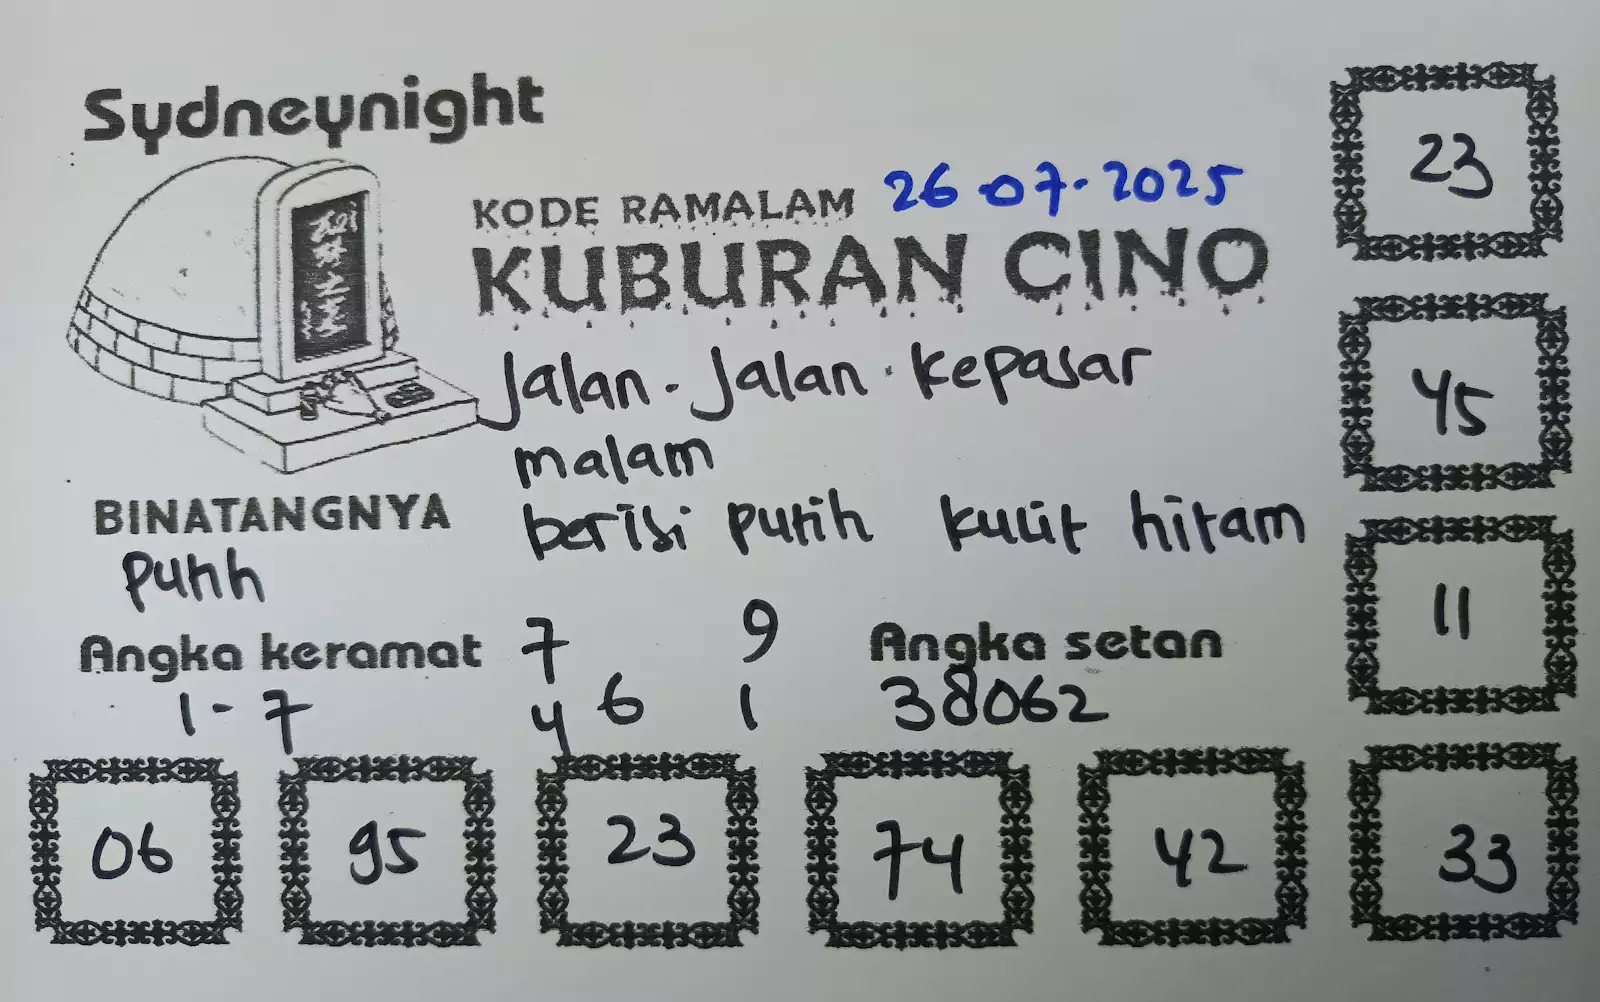 Sydneynight
KODE RAMALAM 26-07-2025
KUBURAN CINO
Jalan-Jalan kepasar
malam
BINATANGNYA
berisi putih kulit hitam
Putih
Angka keramat
1-7
7 9
4 6 1
Angka setan
38062
23
45
11
06 95 23 74 42 33